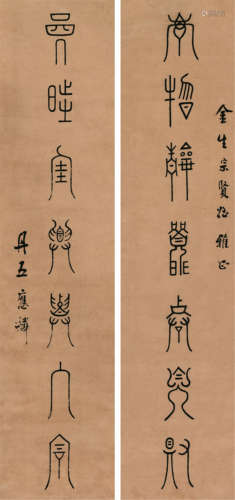 金生宗賢 雅正
萬物靜觀皆自得
四時佳興與人同
丹五應